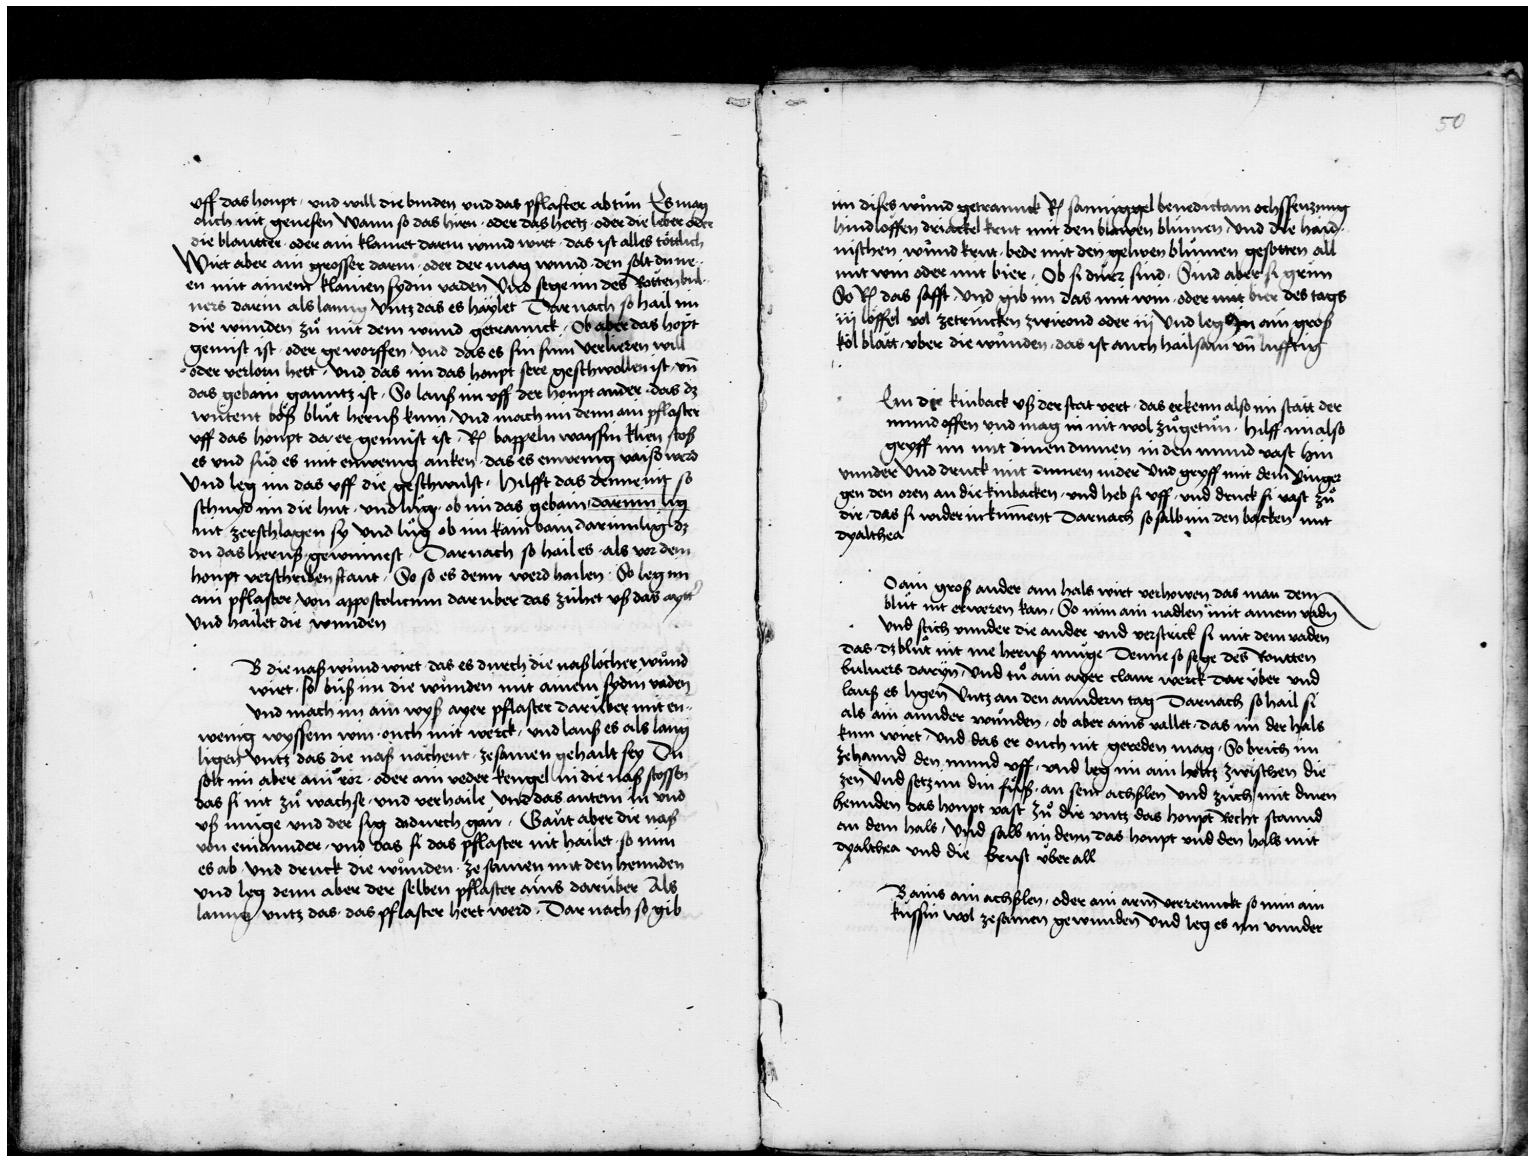 uff das houpt · und will die binden und das pflaster abtůn Es mag
ouch nit genesen Wann so das hirn · oder das hertz · oder die leber oder
die blautter · oder ain klainer darm wund wirt · das ist alles töttlich
Wirt aber ain grosser darm · oder der mag wund · den solt du ne-
en mit ainem klainen sydin vaden Und sege im des Rotten bul-
uers darin als lanng Untz das es haylet Dar nach so hail im
die wunden zů mit dem wund getranck · Ob aber das hopt
gemist ist · oder geworffen und das es sin sinn verlieren will
oder verlorn hett · und das im das houpt sere geschwollen ist · un̄
das gebain ganntz ist · So lauß im uff der houpt ander · das dz
wůtent böß blůt heruß kum · Und mach im denn ain pflaster
uff das houpt da er gemist ist · Rͬ bappeln waissin klien stoß
es und süd es mit ain wenig anken · das es ain wenig waich werd
Und leg im das uff die geschwulst · hilfft das denne nit so
schnyd im die hut · und lůg · ob im das gebain darinn lig
nit zerschlagen sy Und lůg ob im kain bain darinn lig dz
du das heruß gewinnest · Darnach so hail es · als vor dem
houpt verschriben staut · So so es denn werd hailen · So leg im
ain pflaster von appostolicum dar über das zühet uß das aytter
Und hailet die wunden
B die naß wůnd wirt das es durch die naß löcher wůnd
wirt · so büß im die wůnden mit ainem sydin vaden
Und mach im ain wyß ayer pflaster darüber mit en-
wenig wyssem win · ouch mit werck · und lauß es als lang
ligen untz das die naß nächent · zesamen gehailt sey Du
solt im aber ain ror · oder ain veder kengel in die naß stossen
das si nit zů wachse · und verhaile Und das antem in und
uß müge und der syg dadurch gan · Gaut aber die naß
von einannder · und das si das pflaster nit hailet · so nim
es ab und druck die wůnden · ze samen mit den hennden
und leg denn aber der selben pflaster ains darüber Als
lanng untz das · das pflaster hert werd · Dar nach so gib
50
im dises wund getranck Rͬ sanniggel benedictam ochssenzung
hindlöffen driackel krut mit den blawen blůmen · Und die haid-
nischen wůnd krut · bede mit den gelwen blůmen gesotten all
mit win oder mit bier · Ob si dürr sind · Sind aber si grün
So Rͬ das safft und gib im das mit win · oder mit bier des tags
iij löffel vol zetrincken zwirond oder iij Und leg Im ain groß
köl blatt · über die wůnden · das ist auch hailsam un̄ lufftig
Em die kinback uß der stat vert · das erkenn also im statt der
mund offen und mag in nit wol zůgetůn · hilff im also
gryff im mit dinen dumen in den mund vast hin
unnder Und druck mit dumen nider Und gryff mit dem vinger
gen den oren an die kinbacken · und heb si uff · und druck si vast zů
dir · das si wider in kumment Darnach so salb im den backen mit
dyalthea
O ain groß ander am hals wirt verhowen das man dem
blůt nit erweren kan · So nim ain nadlen mit ainem vaden
und stich unnder die ander und verstrick si mit dem vaden
das · dz blůt nit me heruß müge Denne so sege des Routten
buluers daryn · Und tů ain ayer claur werck dar über und
lauß es ligen Untz an den anndern tag Darnach so hail si
als ain annder wůnden · ob aber ains vallet · das im der hals
krum wirt · Und das er ouch nit gereden mag · So brich im
zehannd den mund uff · und leg im ain holtz zwischen die
zen Und setz im din füß · an sein achßlen Und züch mit dinen
hennden das houpt vast zů dir untz das houpt Recht stannd
an dem hals · Und salb im denn das houpt und den hals mit
dyalthea und die brust über all
B ains ain achßlen · oder ain arm verrenckt so nim ain
küssin wol zesamen gewunden Und leg es im unnder